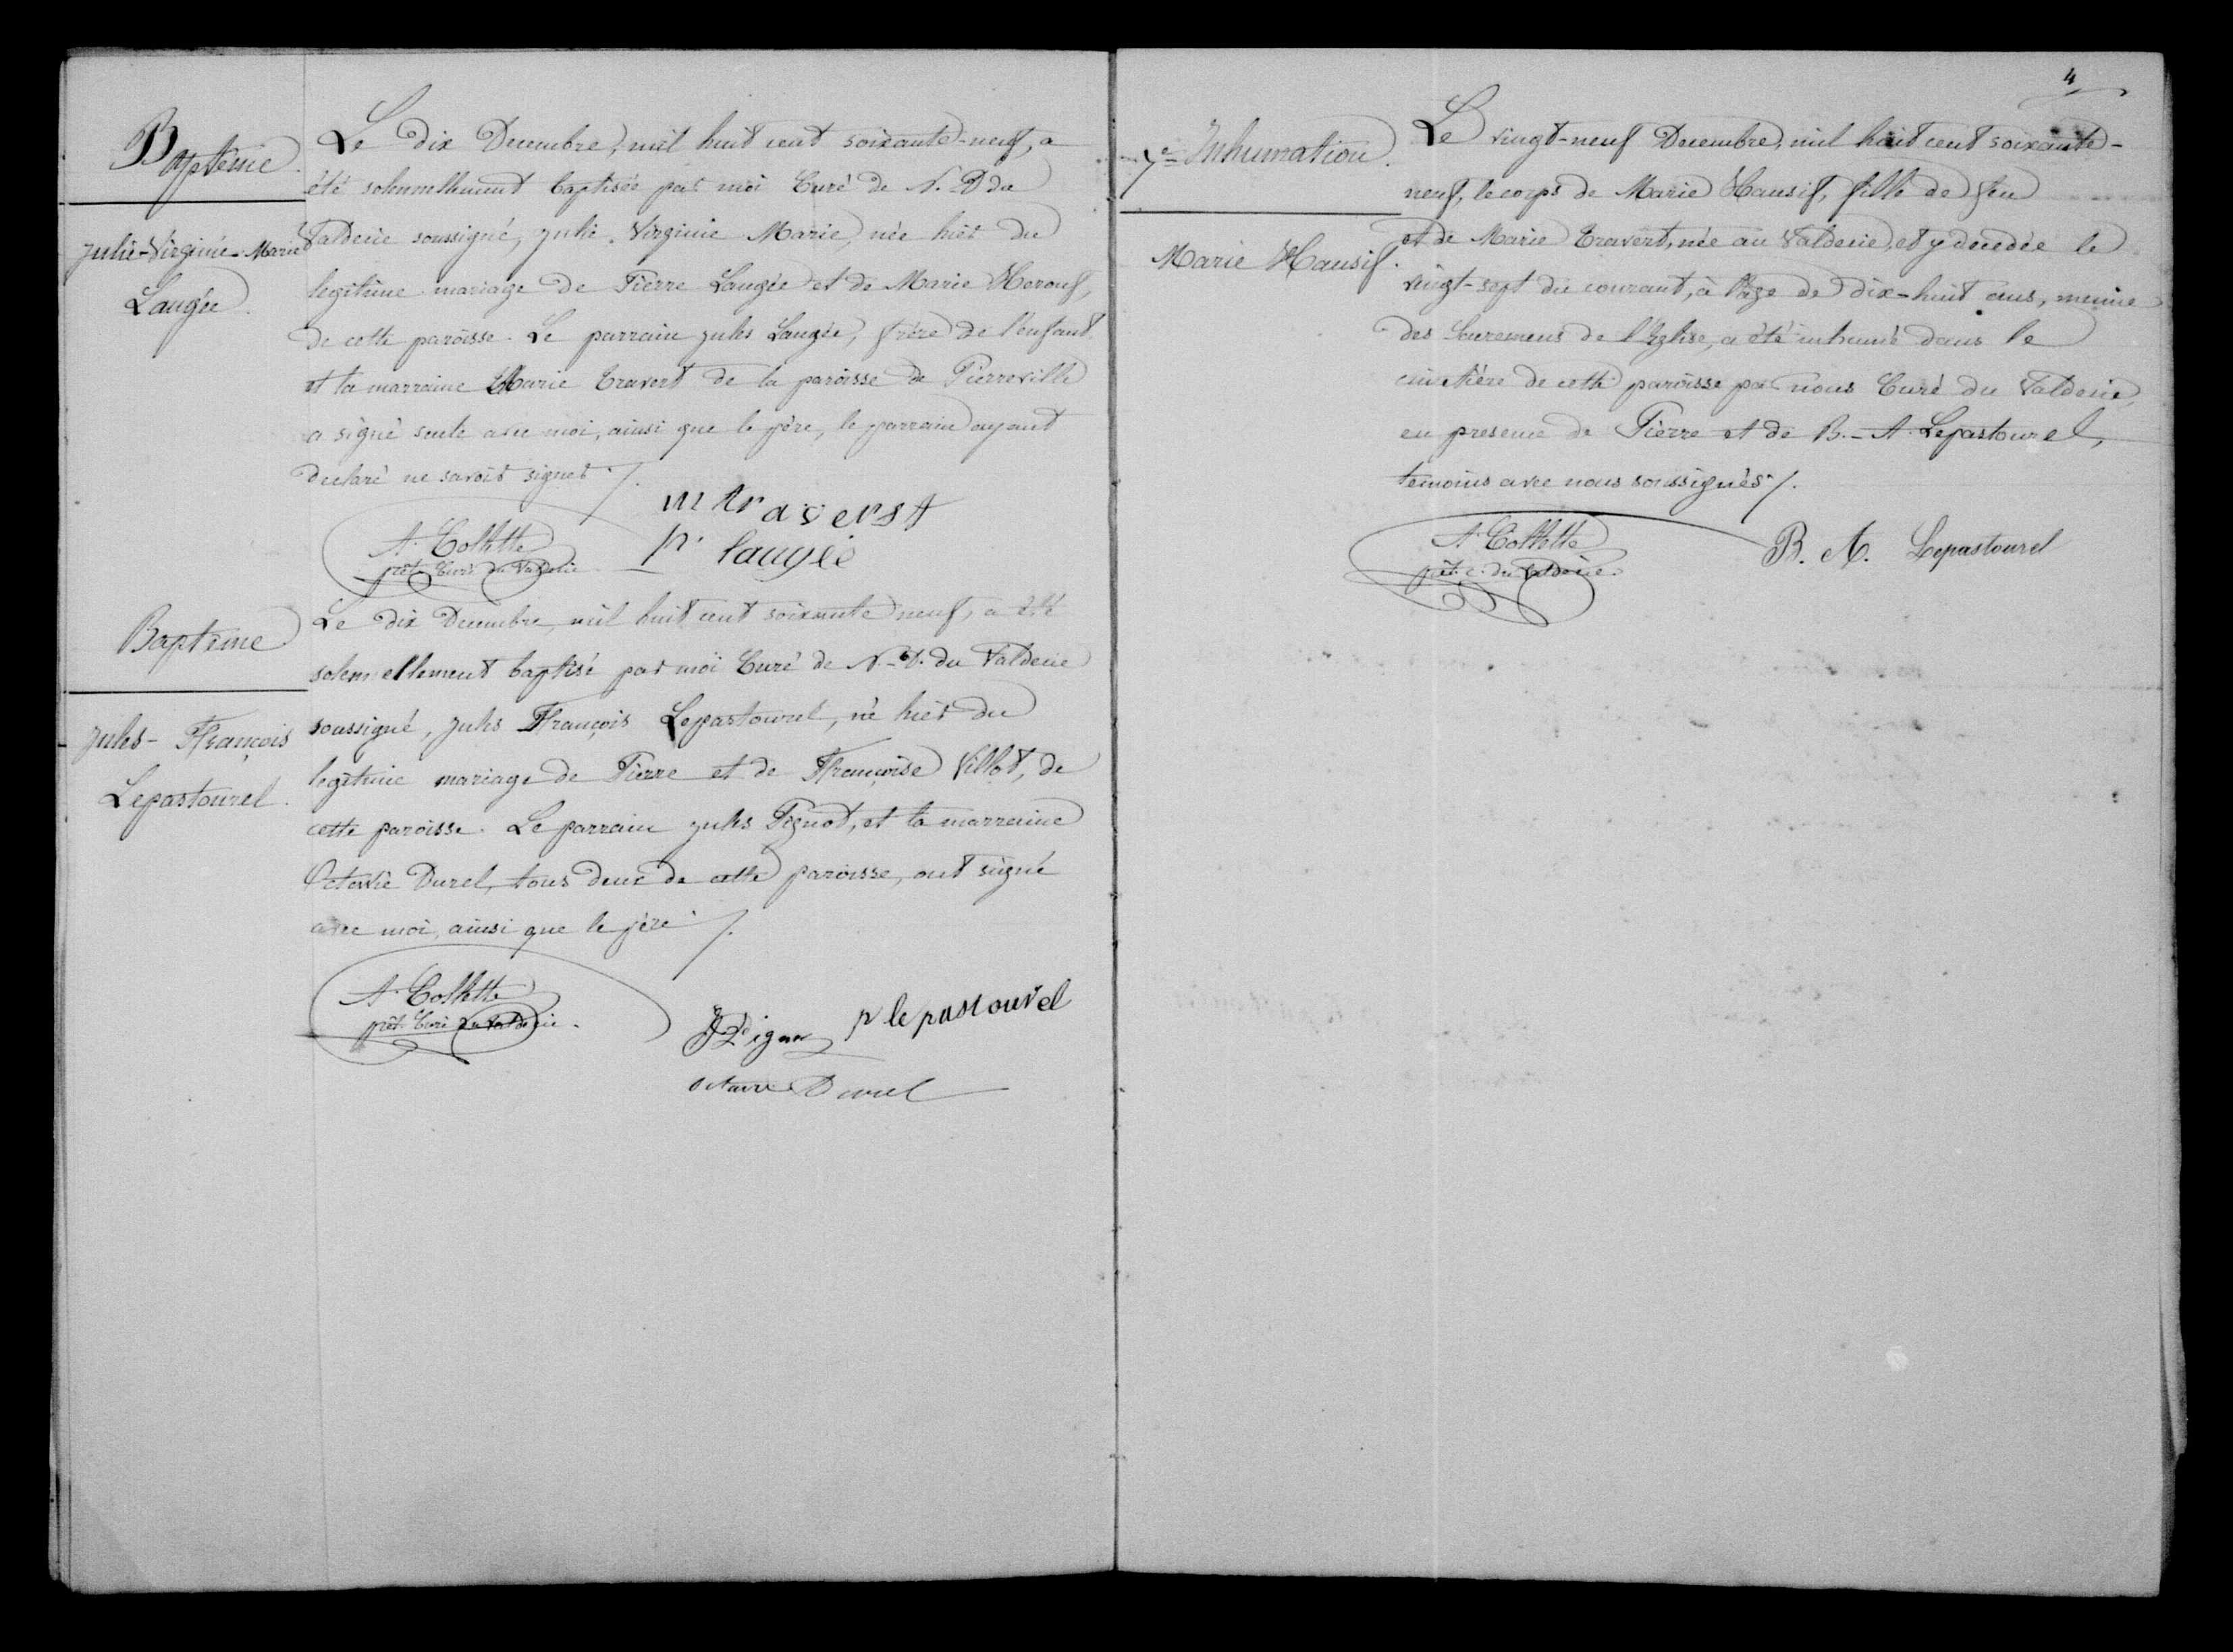 Baptême.
Julie-Virginie-Marie
Laugée.
Le dix Decembre, mil huit cent soixante-neuf, a
été solennellement baptisée par moi Curé de N. D du
Valdecie soussigné, Julie Virginie Marie, née hier du
legitime mariage de Pierre Laugée et de Marie Herouf,
de cette paroisse. Le parrain Jules Laugée, frère de l'enfant
et la marraine Marie Travert de la paroisse de Pierreville
a signé seule avec moi, ainsi que le père, le parrain ayant
declaré ne savoir signer ./.
A. Collette
prêt. Curé du Valdecie
m traverst
p. laugée
Baptême
Jules-François
Lepastourel.
Le dix Decembre, mil huit cent soixante neuf, a été
solemnellement baptisé par moi Curé de N.-D. du Valdecie
soussigné, Jules François Lepastourel, né hier du
legitime mariage de Pierre et de Françoise Villot, de
cette paroisse. Le parrain Jules Pignot, et la marraine
Octavie Durel, tous deux de cette paroisse, ont signé
avec moi, ainsi que le père ./.
A. Collette
prêt. Curé du Valdecie.
p lepastourel
octavie Durel
4
7e Inhumation.
Marie Hausif.
Le vingt-neuf Decembre, mil huit cent soixante-
neuf, le corps de Marie Hausif, fille de feu
et de Marie Travert, née au Valdecie, et y decedée le
vingt-sept du courant, à l'âge de dix-huit ans, munie
des Sacremens de l'Eglise, a été inhumé dans le
cimetière de cette paroisse par nous Curé du Valdecie,
en presence de Pierre et de B.-A. Lepastourel,
temoins avec nous soussignés ./.
A. Collette
prêt. c. du Valdecie.
B. A. Lepastourel